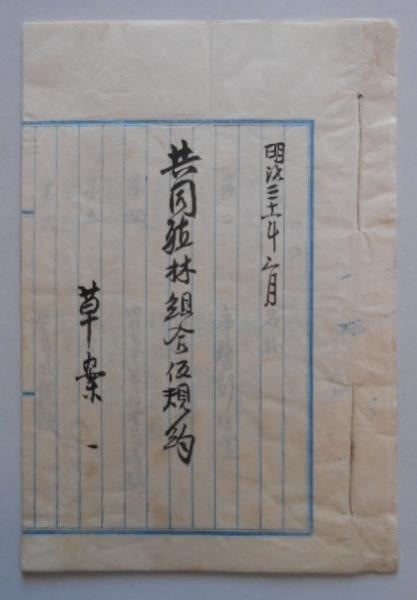 明治三十一年三月
共同殖林組合伍規約
草案一